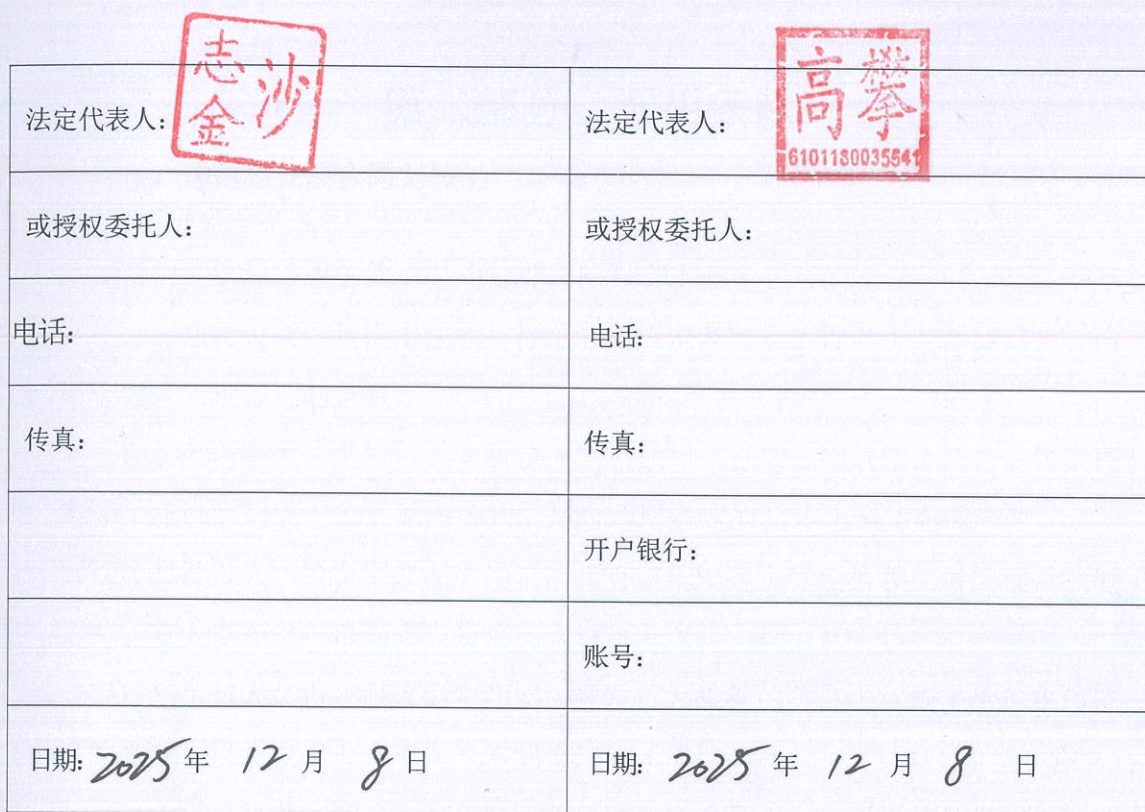 沙志金
法定代表人：
高攀
6101130035541
法定代表人：
或授权委托人：
或授权委托人：
电话：
电话：
传真：
传真：
开户银行：
账号：
日期：2025年 12月 8日
日期：2025年 12月 8日